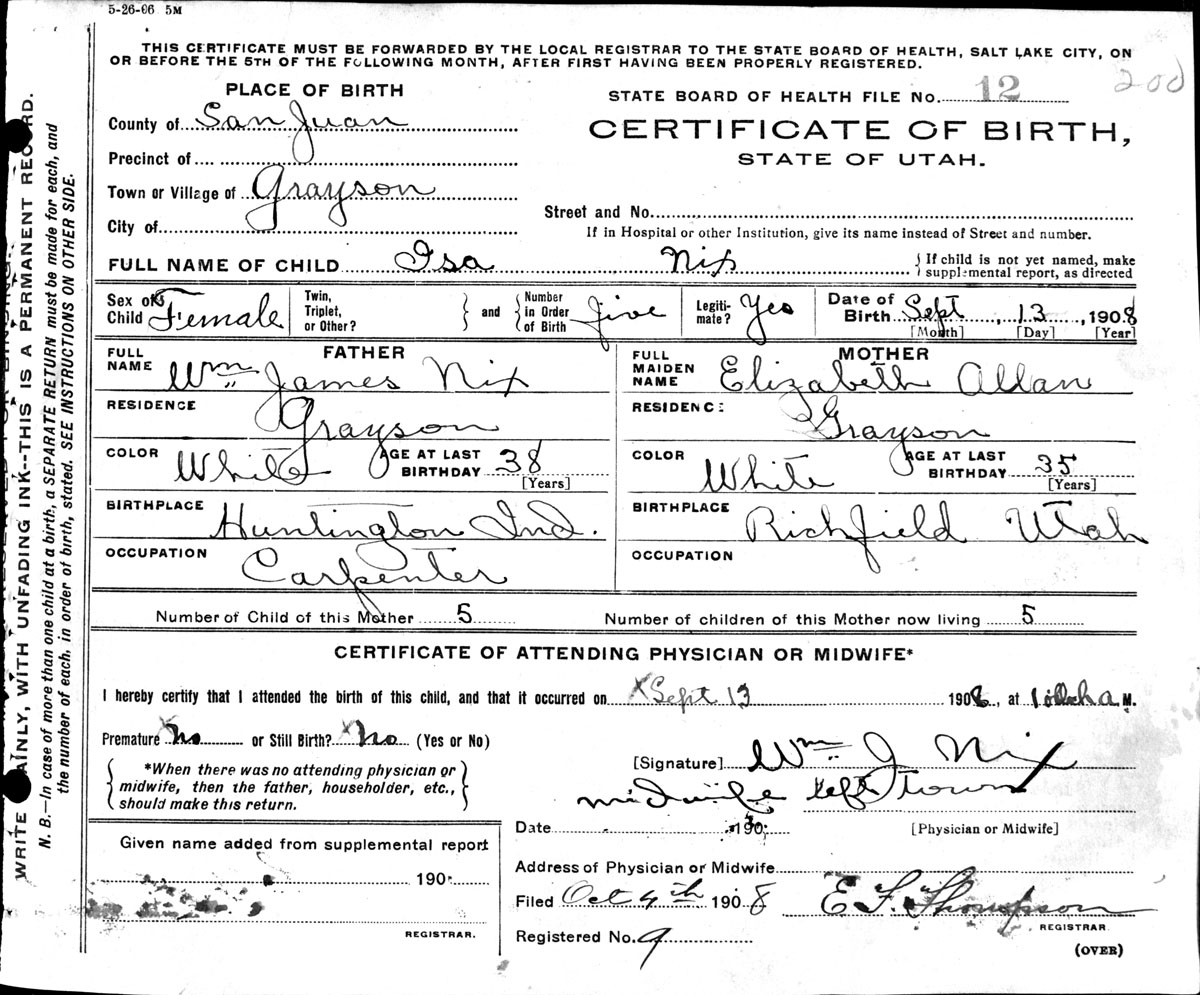 5-26-06 5M
THIS CERTIFICATE MUST BE FORWARDED BY THE LOCAL REGISTRAR TO THE STATE BOARD OF HEALTH, SALT LAKE CITY, ON
OR BEFORE THE 5TH OF THE FOLLOWING MONTH, AFTER FIRST HAVING BEEN PROPERLY REGISTERED.
200
PLACE OF BIRTH
STATE BOARD OF HEALTH FILE No. 12
County of San Juan
CERTIFICATE OF BIRTH,
STATE OF UTAH.
Precinct of
Town or Village of Grayson
City of
Street and No.
If in Hospital or other Institution, give its name instead of Street and number.
FULL NAME OF CHILD Isa Nix
{ If child is not yet named, make
supplemental report, as directed
Sex of Child Female
Twin, Triplet, or Other?
} and {
Number in Order of Birth five
Legitimate? Yes
Date of Birth Sept, 13, 1908
[Month] [Day] [Year]
FATHER
FULL NAME Wm James Nix
RESIDENCE Grayson
COLOR White AGE AT LAST BIRTHDAY 38
[Years]
BIRTHPLACE Huntington Ind.
OCCUPATION Carpenter
MOTHER
FULL MAIDEN NAME Elizabeth Allan
RESIDENCE Grayson
COLOR White AGE AT LAST BIRTHDAY 35
[Years]
BIRTHPLACE Richfield Utah
OCCUPATION
Number of Child of this Mother 5 Number of children of this Mother now living 5
CERTIFICATE OF ATTENDING PHYSICIAN OR MIDWIFE*
I hereby certify that I attended the birth of this child, and that it occurred on X Sept 13 1908, at 1 oclock a M.
Premature X No or Still Birth? X No (Yes or No)
{ *When there was no attending physician or
midwife, then the father, householder, etc.,
should make this return. }
[Signature] Wm J Nix
midwife left town
Date 190
[Physician or Midwife]
Given name added from supplemental report
190
REGISTRAR.
Address of Physician or Midwife
Filed Oct 4th 1908 E F Thompson
REGISTRAR
Registered No. 9
(OVER)
WRITE PLAINLY, WITH UNFADING INK--THIS IS A PERMANENT RECORD.
N. B.—In case of more than one child at a birth, a SEPARATE RETURN must be made for each, and
the number of each, in order of birth, stated. SEE INSTRUCTIONS ON OTHER SIDE.